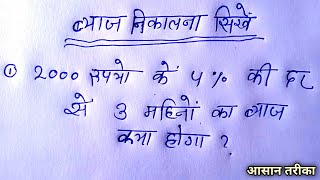 ब्याज निकालना सिखें
① 2000 रुपयो के 4% की दर
से 3 महिनों का ब्याज
क्या होगा ?
आसान तरीका